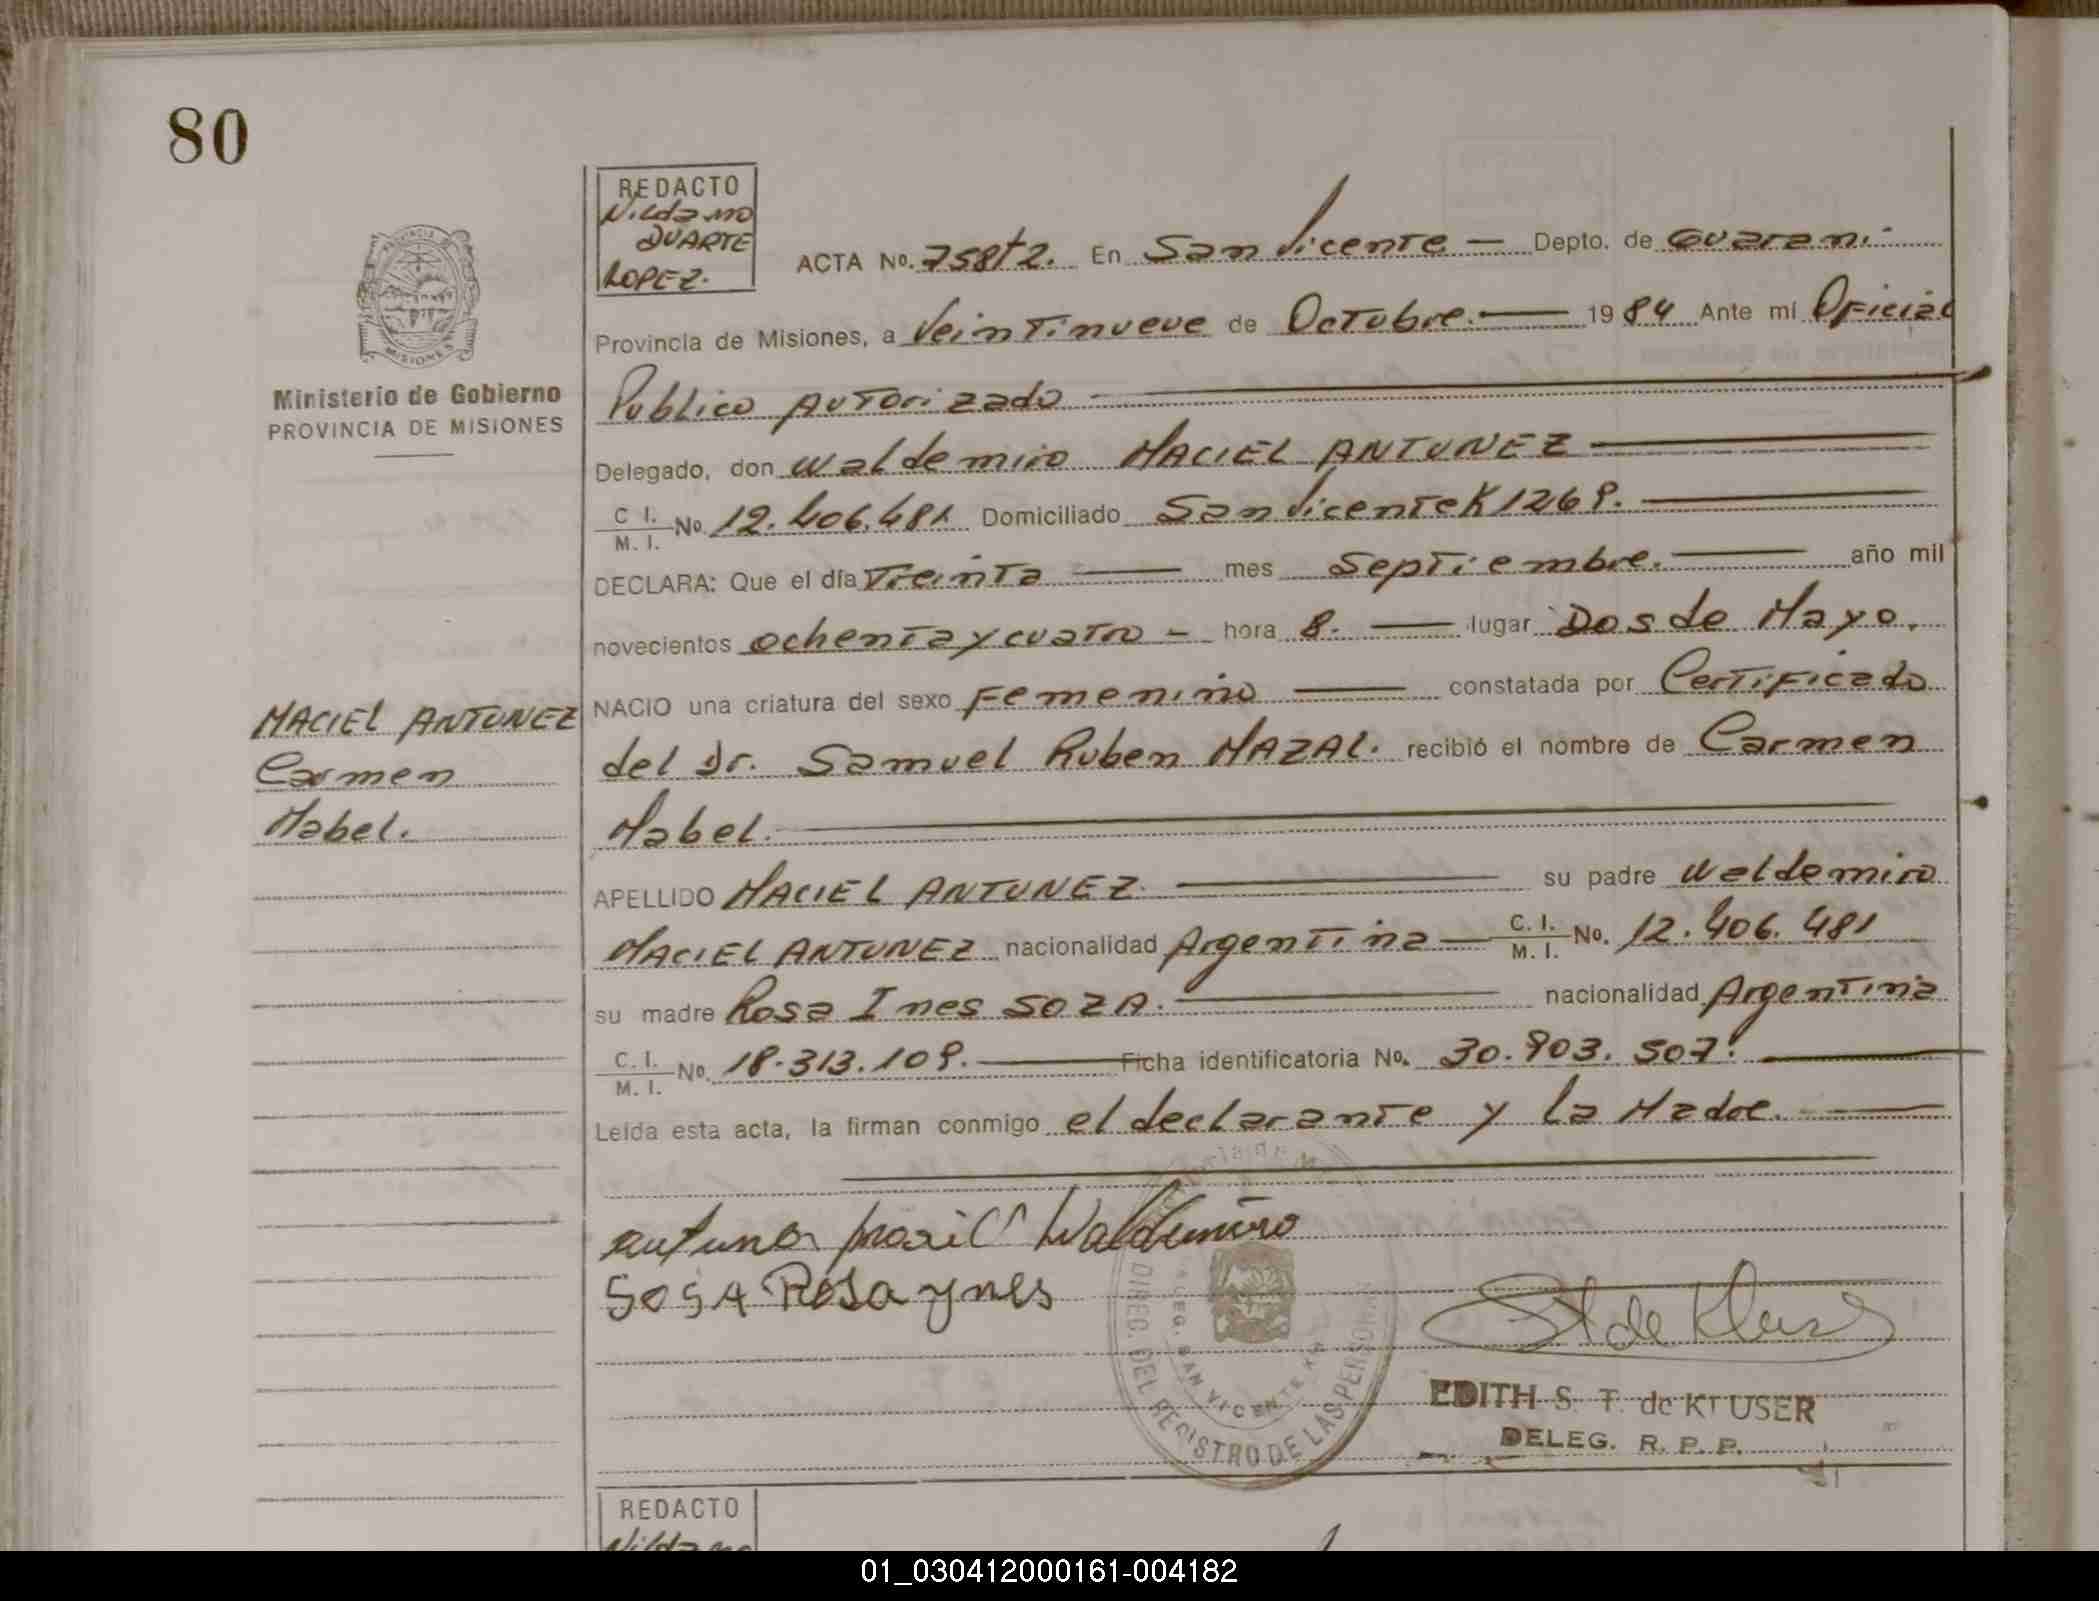 80
PROVINCIA DE
MISIONES
Ministerio de Gobierno
PROVINCIA DE MISIONES
REDACTO
Nildamo
DUARTE
LOPEZ.
ACTA No. 758t2. En San Vicente — Depto. de Guarani
Provincia de Misiones, a Veintinueve de Octubre. — 1984 Ante mi Oficial
Publico Autorizado
Delegado, don Waldemiro MACIEL ANTUNEZ
C I. / M. I. No. 12.406.481 Domiciliado San Vicente K 1269.
DECLARA: Que el día Treinta — mes Septiembre. — año mil
novecientos ochenta y cuatro — hora 8. — lugar Dos de Mayo.
NACIO una criatura del sexo Femenino — constatada por Certificado
del Dr. Samuel Ruben MAZAL. recibió el nombre de Carmen
Mabel.
MACIEL ANTUNEZ
Carmen
Mabel.
APELLIDO MACIEL ANTUNEZ. — su padre Waldemiro
MACIEL ANTUNEZ nacionalidad Argentina — C. I. / M. I. No. 12.406.481
su madre Rosa Ines SOZA. — nacionalidad Argentina
C. I. / M. I. No. 18.313.109. — Ficha identificatoria No. 30.903.507.
Leída esta acta, la firman conmigo el declarante y la Madre.
Waldemiro
SOSA Rosa ynes
DIREC. DEL REGISTRO DE LAS PERSONAS
DELEG. SAN VICENTE
EDITH S. T. de KLUSER
DELEG. R. P. P.
REDACTO
Nildamo
01_030412000161-004182